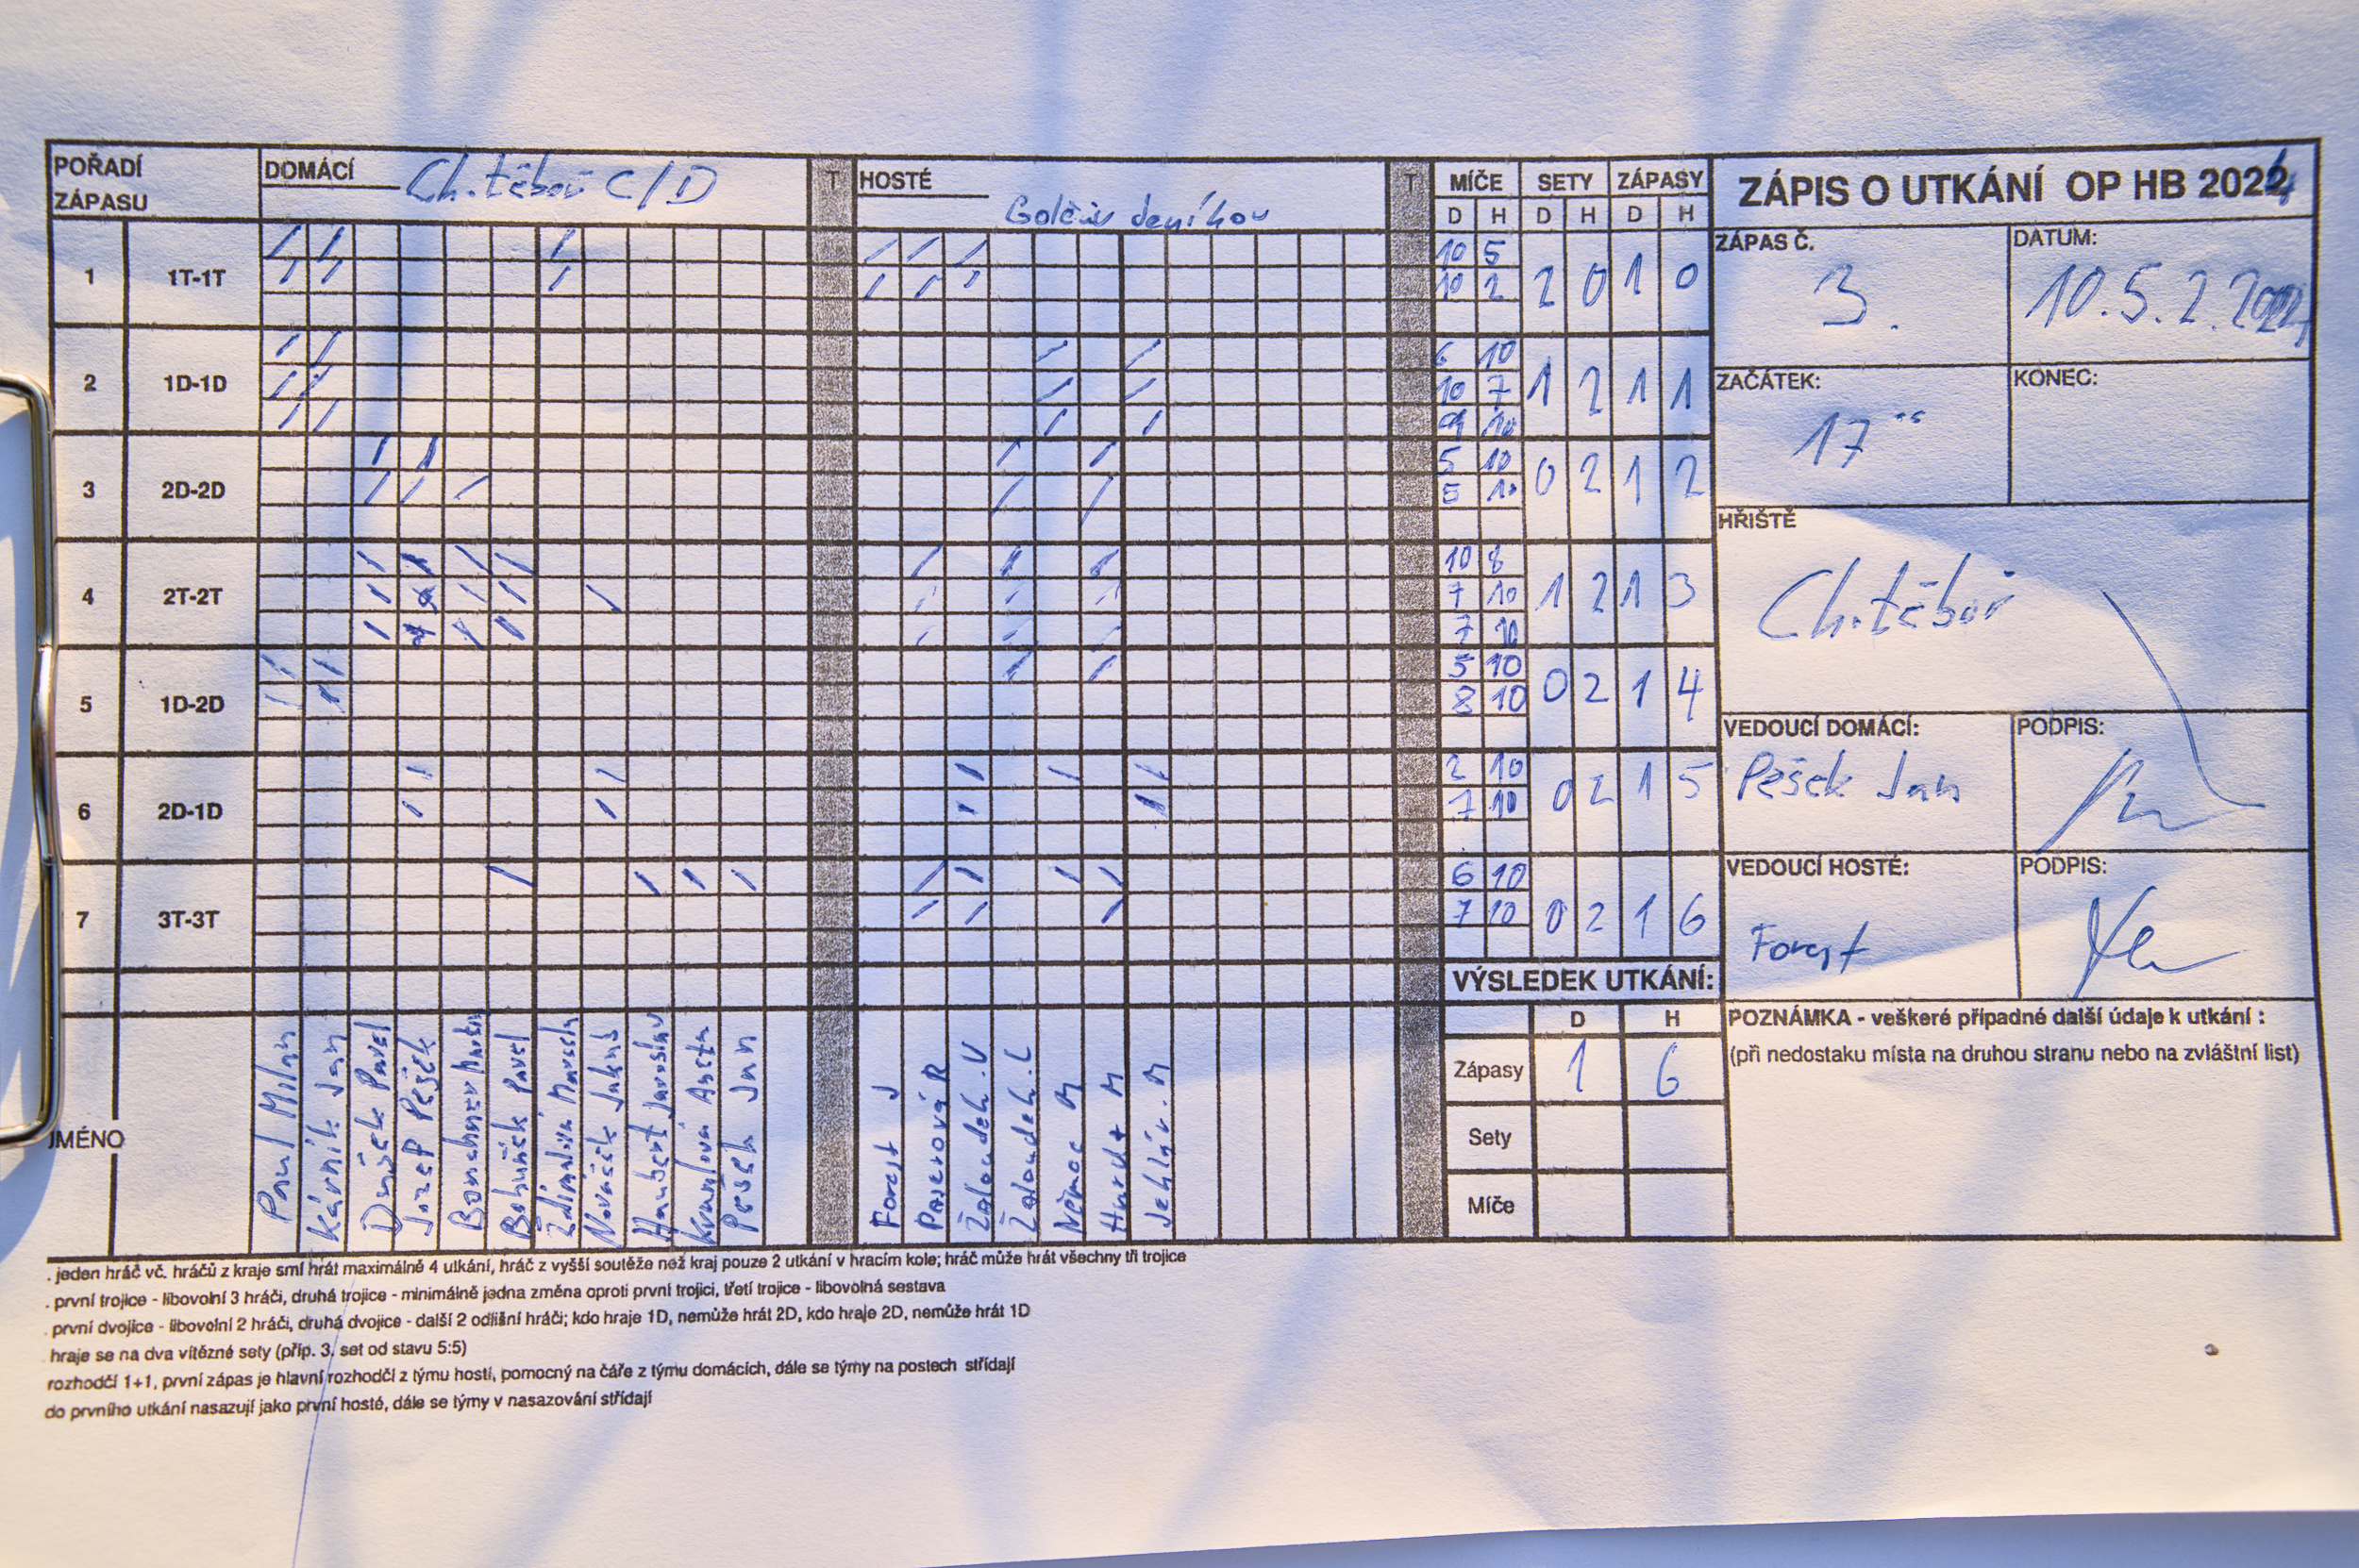 POŘADÍ ZÁPASU
DOMÁCÍ Ch.těboř C/D
T
HOSTÉ Golčův Jeníkov
T
MÍČE SETY ZÁPASY
D H D H D H
ZÁPIS O UTKÁNÍ OP HB 2024
ZÁPAS Č. 3.
DATUM: 10.5.
ZAČÁTEK: 17
KONEC:
HŘIŠTĚ
Ch.těboř
VEDOUCÍ DOMÁCÍ: Pešek Jan
PODPIS:
VEDOUCÍ HOSTÉ: Forest
PODPIS:
1 1T-1T
10 5
10 2
2 0 1 0
2 1D-1D
6 10
10 7
9 10
1 2 1 1
3 2D-2D
5 10
5 10
0 2 1 2
4 2T-2T
10 8
7 10
7 10
1 2 1 3
5 1D-2D
5 10
8 10
0 2 1 4
6 2D-1D
2 10
7 10
0 2 1 5
7 3T-3T
6 10
7 10
0 2 1 6
VÝSLEDEK UTKÁNÍ:
D H
Zápasy 1 6
Sety
Míče
POZNÁMKA - veškeré případné další údaje k utkání :
(při nedostaku místa na druhou stranu nebo na zvláštní list)
JMÉNO
Milan
Kárník Jan
Pavel
Josef Pešek
Bohuněk Pavel
Nováček Jakub
Haubert Jaroslav
Pešek Jan
Forest J
Paserová R
Žaloudek.V
Žaloudek.L
Němec M
M
Jehlář.M
. jeden hráč vč. hráčů z kraje smí hrát maximálně 4 utkání, hráč z vyšší soutěže než kraj pouze 2 utkání v hracím kole; hráč může hrát všechny tři trojice
. první trojice - libovolní 3 hráči, druhá trojice - minimálně jedna změna oproti první trojici, třetí trojice - libovolná sestava
. první dvojice - libovolní 2 hráči, druhá dvojice - další 2 odlišní hráči; kdo hraje 1D, nemůže hrát 2D, kdo hraje 2D, nemůže hrát 1D
. hraje se na dva vítězné sety (příp. 3. set od stavu 5:5)
rozhodčí 1+1, první zápas je hlavní rozhodčí z týmu hostí, pomocný na čáře z týmu domácích, dále se týmy na postech střídají
do prvního utkání nasazují jako první hosté, dále se týmy v nasazování střídají